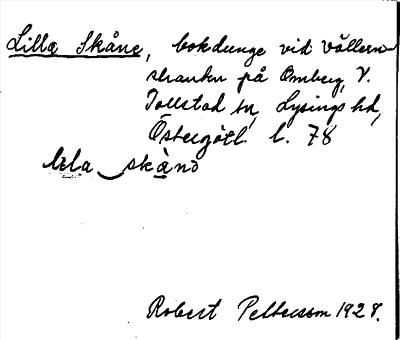 Lilla Skåne, bokdunge vid Vättern-
stranden på Omberg, V.
Tollstad sn, Lysings hd,
Östergötl. l. 78
lila skånə
Robert Pettersson 1928.